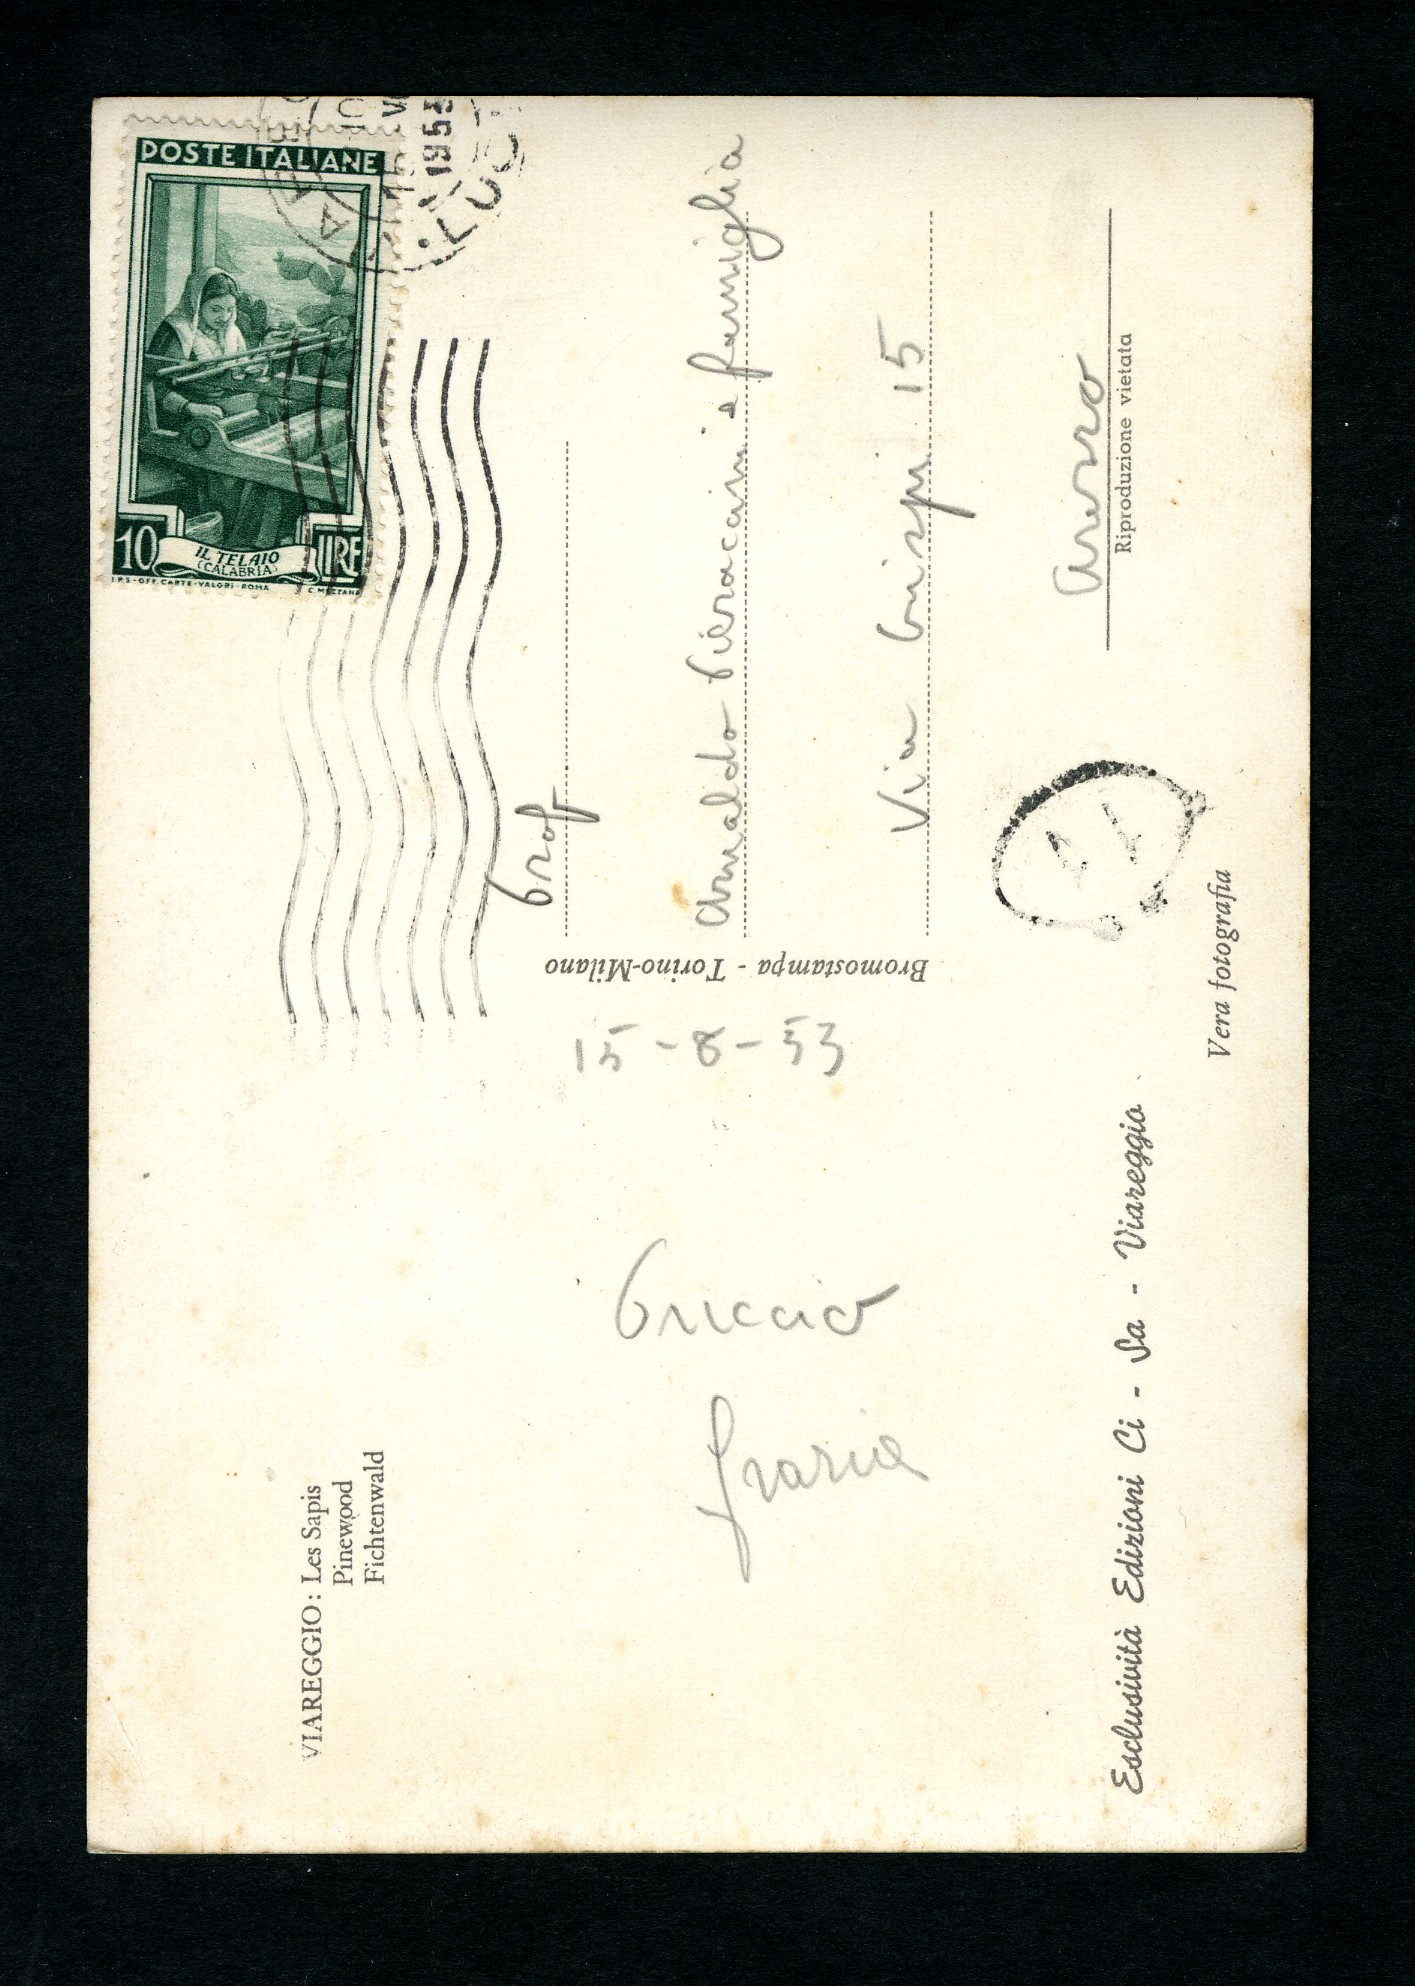 VIAREGGIO: Les Sapis
Pinewood
Fichtenwald
15-8-53
Grazia
Esclusività Edizioni Ci - Sa - Viareggio
Vera fotografia
Bromostampa - Torino-Milano
POSTE ITALIANE
10 LIRE
IL TELAIO
(CALABRIA)
I.P.S-OFF.CARTE-VALORI-ROMA C. MEZZANA
1953
Prof
Arnaldo Pieraccini e famiglia
Via Crispi 15
Arezzo
Riproduzione vietata